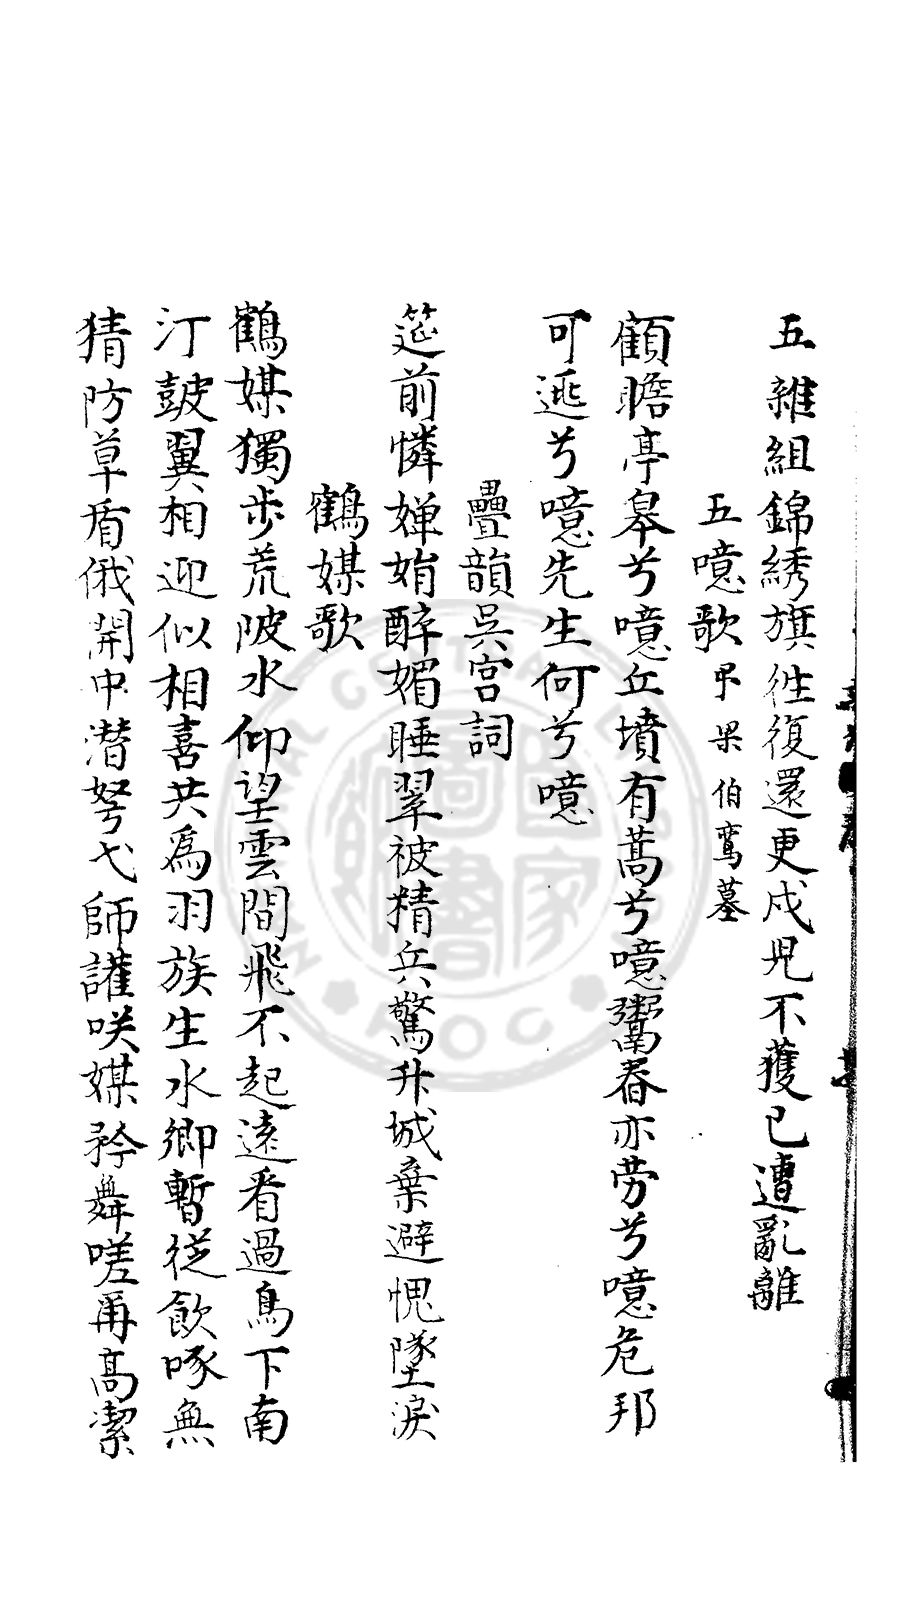 五雜組錦綉旗徃復還更戍皃不獲已遭亂離
五噫歌弔梁伯鸞墓
顧瞻亭皋兮噫丘墳有蒿兮噫鬻舂亦劳兮噫危邦
可逃兮噫先生何兮噫
疊韻吳宮詞
筵前憐嬋娟醉媚睡翠被精兵驚升城棄避愧墜淚
鶴媒歌
鶴媒獨步荒陂水仰望雲間飛不起遠看過鳥下南
汀皷翼相迎似相喜共爲羽族生水鄉暫從飲啄無
猜防草盾俄開中潜弩弋師讙咲媒矜舞嗟爾高潔